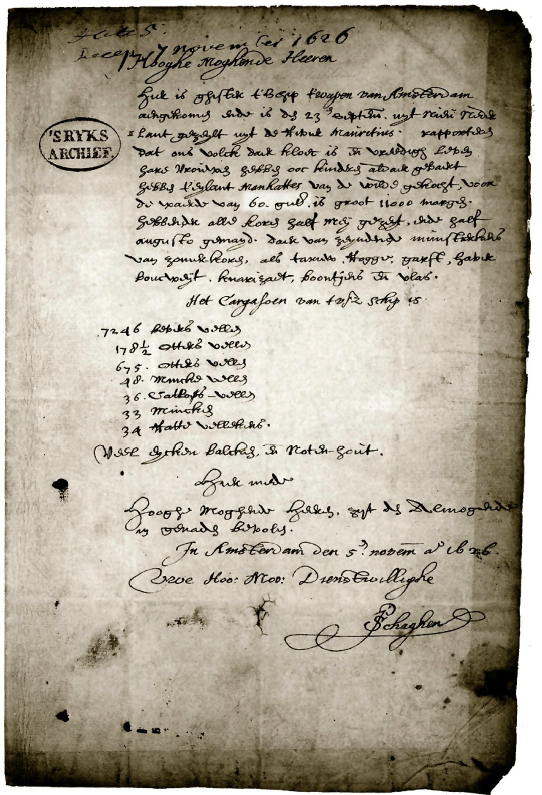 Recep. 7 November 1626
Hooghe Moghende Heeren
Hier is ghister t'schip t'wapen van Amsterdam
aengekomen ende is den 23en septem. uyt Nieu Neder
'SRYKS
ARCHIEF.
=lant gezeylt uyt de rivier Mauritius. rapporteren
dat ons volck daer kloeck is en vreedigh leven
hare vrouwen hebben ooc kinders aldaer gebaert
hebben t'eylant Manhattes van de wilde gekocht, voor
de waerde van 60. guld. is groot 11000 morgen.
hebbende alle koren half Mey gezeyt, ende half
augusto gemayd. daer van zeyndende munsterkens
van zomerkoren, als taruwe, Rogge, garst, haver
boucweyt, knarizaet, boontjens en vlas.
Het Cargasoen van t'vsz schip is
7246 Bevers vellen
178½ Otters vellen
675. Otters vellen
48. Mincke vellen
36. Catloes vellen
33 Mincken
34 Ratte vellekens.
Veel eycken balcken, en Noten-hout.
Hier mede
Hooghe Moghende Heeren, zyt den Almogende
in genaden bevolen.
In Amsterdam den 5en novem ao 1626.
Uwe Hoo: Moo: Dienstwillighe
P Schaghen